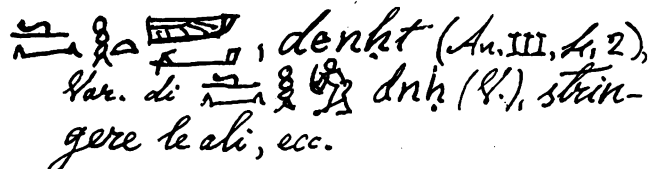 , denḥt (An. III, 4, 2),
Var. di dnḥ (V.), strin-
gere le ali, ecc.